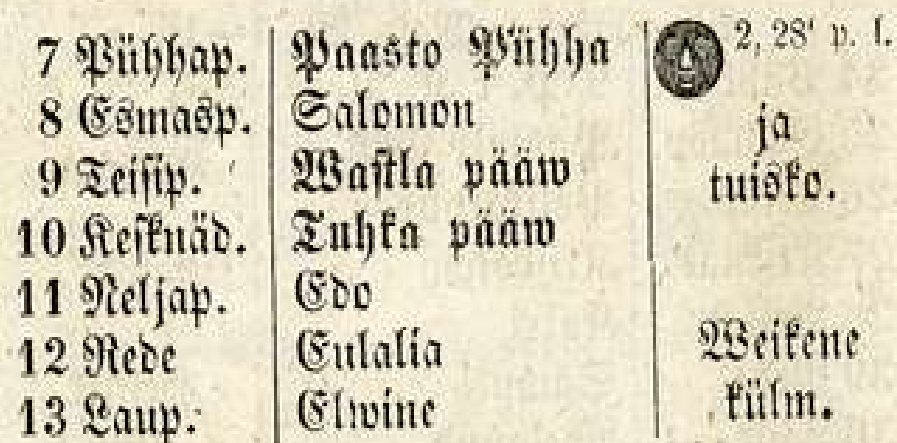 7 Pühhap. Paasto Pühha 2, 28' p. l.
8 Esmasp. Salomon ja
9 Teisip. Wastla pääw tuisko.
10 Kesknäd. Tuhka pääw
11 Neljap. Edo
12 Rede Eulalia Weikene
13 Laup. Elwine külm.